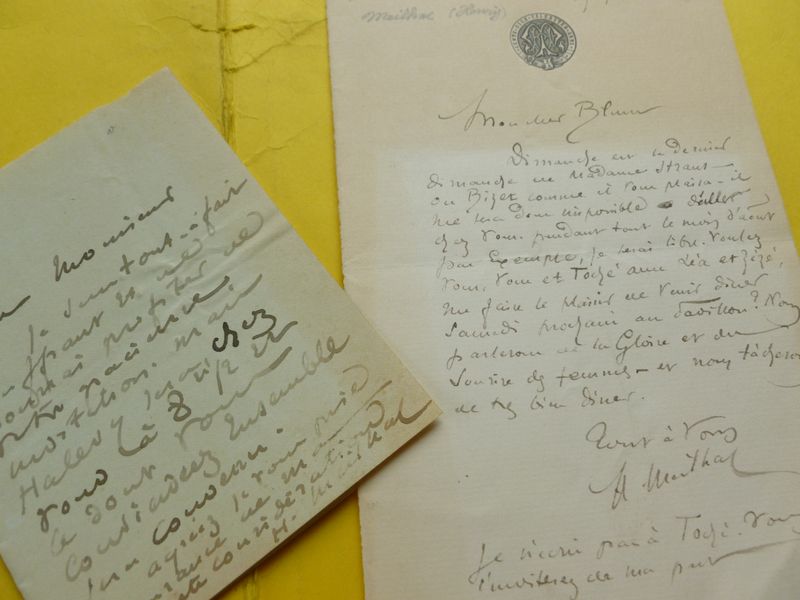 Monsieur
Je suis tout-à-fait
souffrant et ne
pourrai profiter de
votre gracieuse
invitation. mais
Halévy sera chez
vous à 8 h 1/2 et
ce dont vous
causerez ensemble
sera convenu.
agréez je vous prie
l'assurance de ma
considération
H. Meilhac
Meilhac (Henry)
Mon cher Blum
Dimanche est le dernier
dimanche de Madame Straus-
Bizet comme il vous plaira - il
me sera donc impossible d'aller
chez vous. pendant tout le mois d'août
par exemple, je serai libre. Voulez
vous, vous et Toché avec Léa et Zézé,
me faire le plaisir de venir dîner
Samedi prochain au Pavillon? Nous
parlerons de la Gloire et du
Sourire des femmes - et nous tâcherons
de très bien dîner.
Tout à vous
H Meilhac
Je n'écris pas à Toché. Vous
l'inviterez de ma part